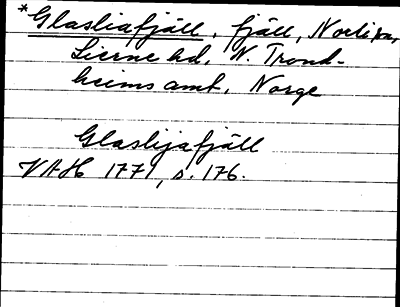 *Glasliafjäll, fjäll, Norli sn,
Lierne hd, N. Trond-
heims amt, Norge
Glaslijafjäll
VAH 1771, s. 176.